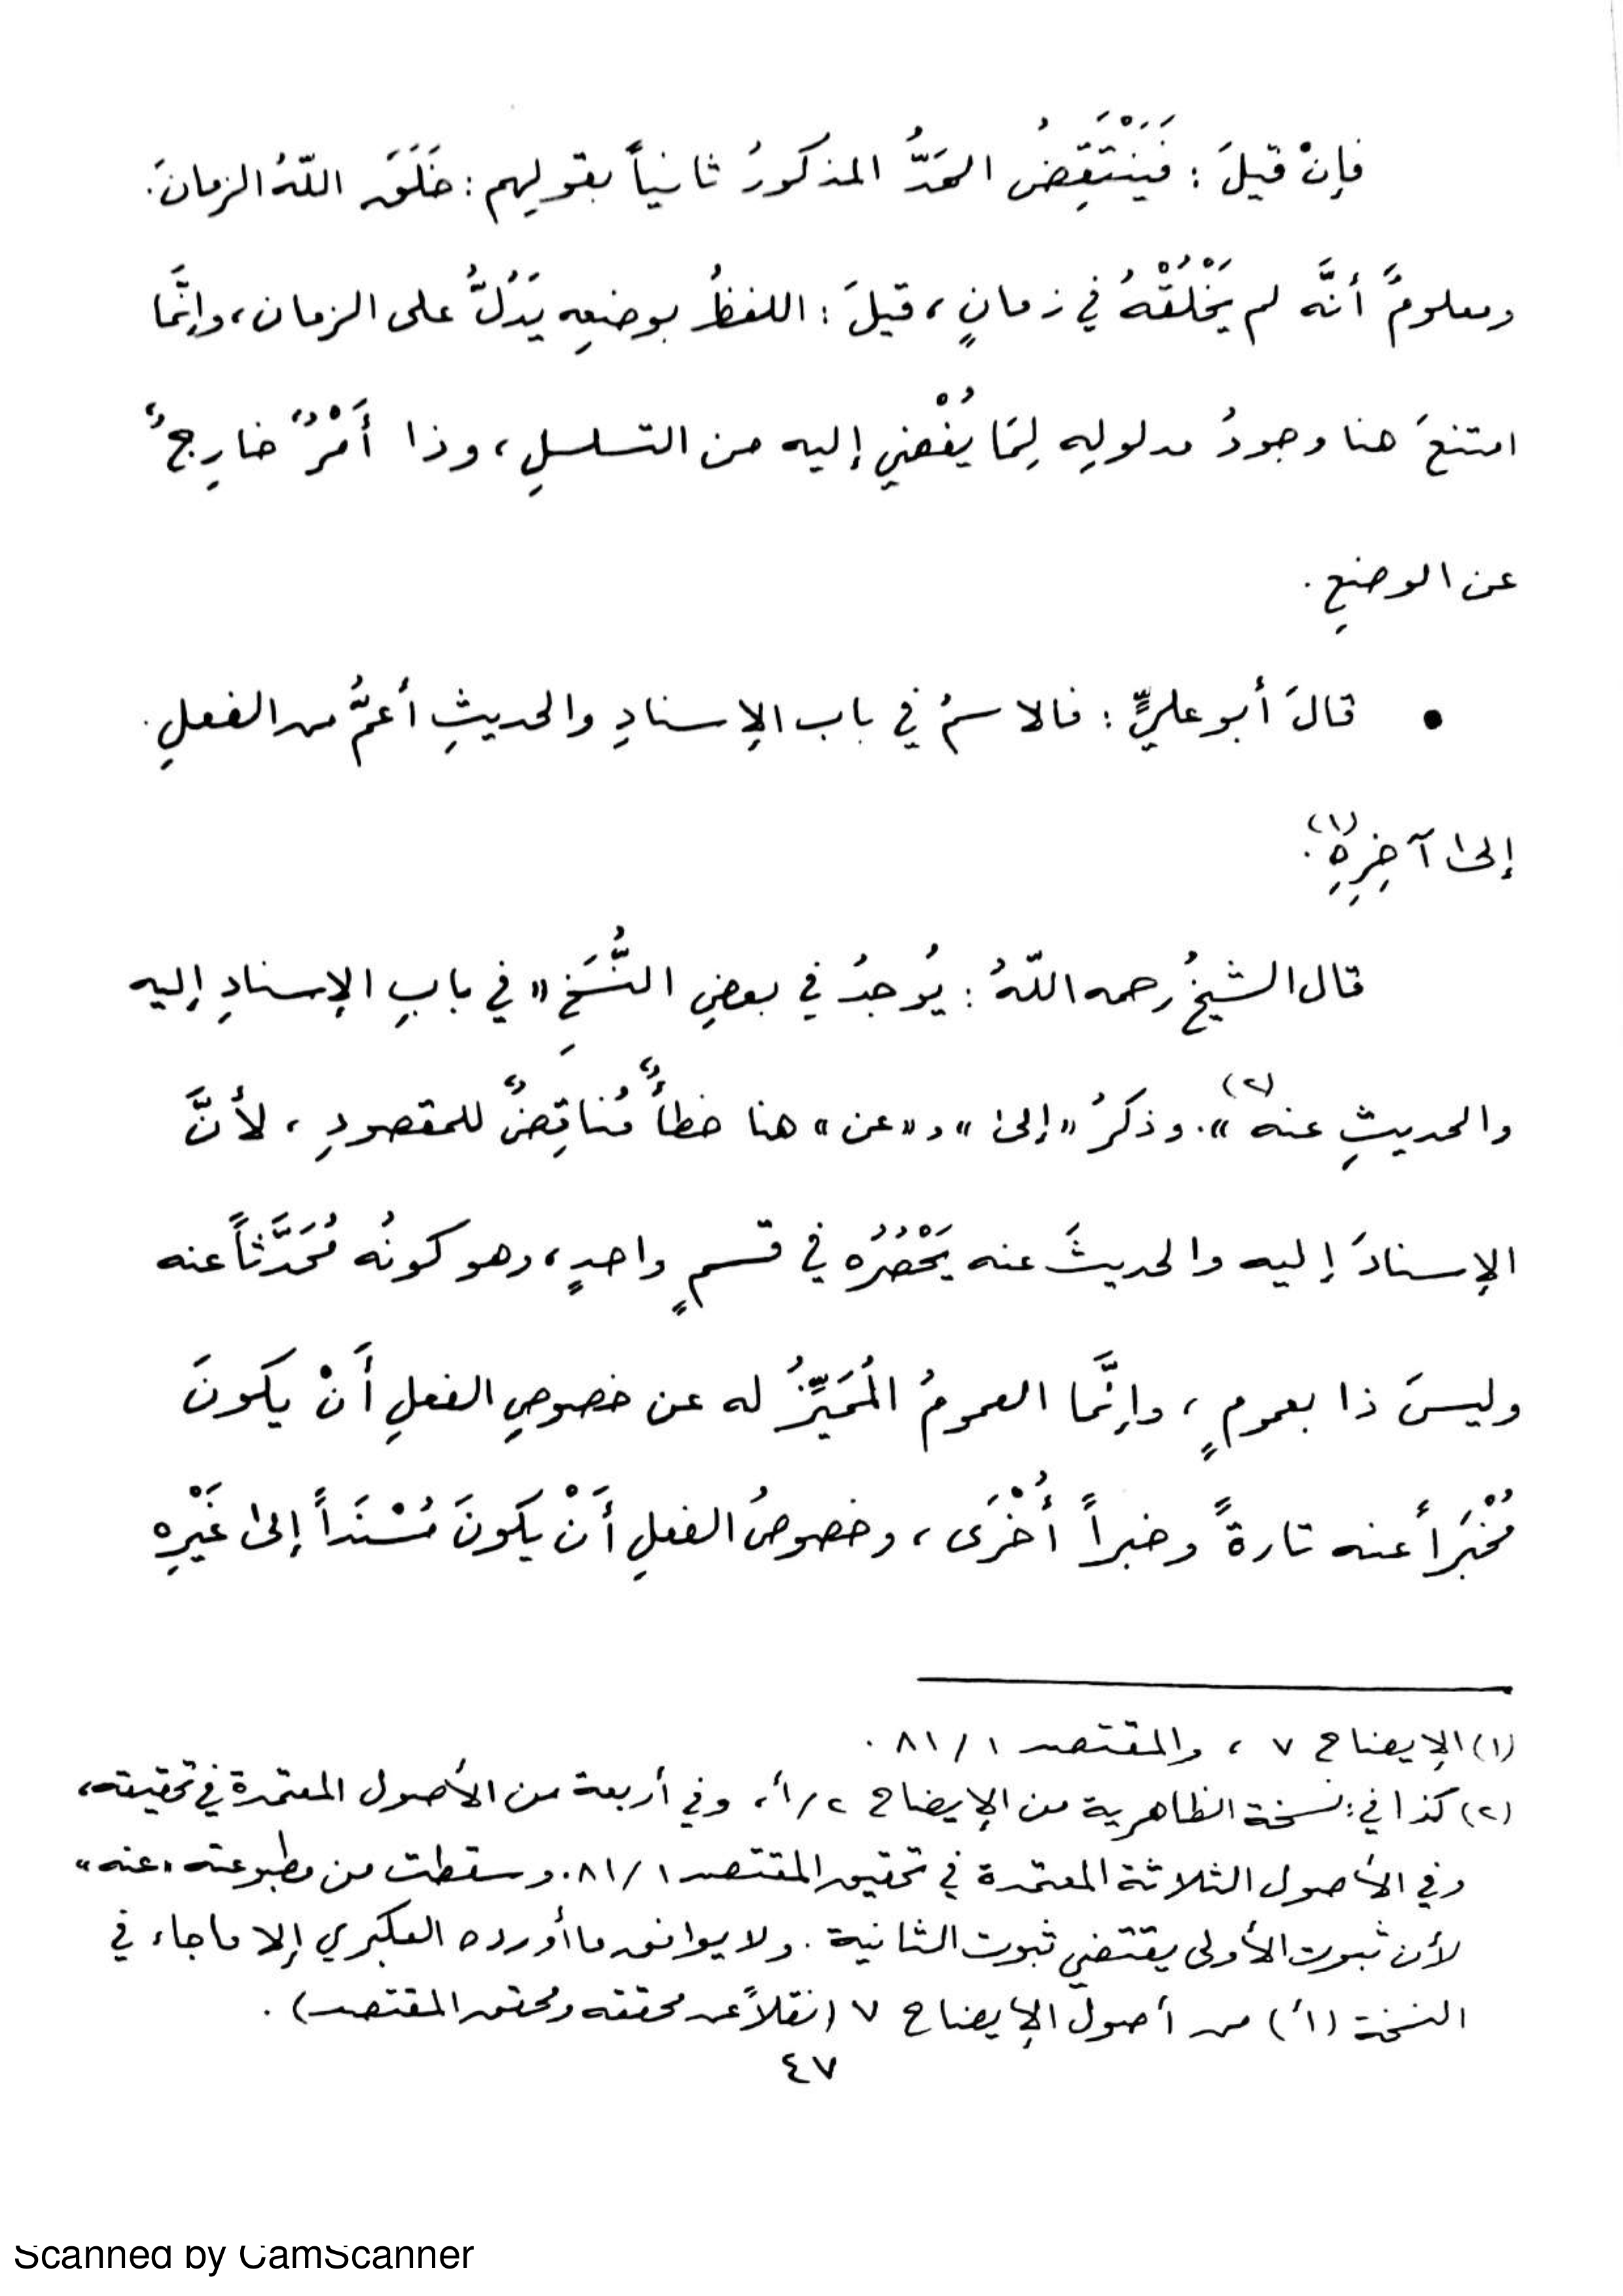 فإنْ قيلَ : فَيَنْتَقِضُ الحَدُّ المذكورُ ثانياً بقولِهم : خَلَقَ اللّهُ الزمانَ .
ومعلومٌ أنَّه لم يَخْلُقْهُ في زمانٍ ، قيلَ : اللفظُ بوضعِه يَدُلُّ على الزمان ، وإنَّما
امتنعَ هنا وجودُ مدلولِهِ لِمَا يُفْضي إليه من التسلسلِ ، وذا أَمْرٌ خارِجٌ
عن الوضعِ .
• قالَ أبو عليٍّ : فالاسمُ في باب الإسنادِ والحديثِ أعمُّ من الفعلِ .
إلى آخِرِهِ (١) .
قال الشيخُ رحمه اللّهُ : يُوجدُ في بعضِ النُّسَخِ « في بابِ الإسنادِ إليه
والحديثِ عنه (٢) » . وذكرُ « إلى » و « عن » هنا خطأٌ مُناقِضٌ للمقصودِ ، لأنَّ
الإسنادَ إليه والحديثَ عنه يَحْصُرُه في قسمٍ واحدٍ ، وهو كونُه مُحَدَّثاً عنه
وليسَ ذا بعمومٍ ، وإنَّما العمومُ المُمَيِّزُ له عن خصوصِ الفعلِ أَنْ يكونَ
مُخْبَراً عنه تارةً وخبراً أُخْرَى ، وخصوصُ الفعلِ أَنْ يكونَ مُسْنَداً إلى غَيْرِهِ
(١) الإيضاح ٧ ، والمقتصد ١ / ٨١ .
(٢) كذا في : نسخة الظاهرية من الإيضاح ٢/أ ، وفي أربعة من الأصول المعتمدة في تحقيقه ،
وفي الأصول الثلاثة المعتمدة في تحقيق المقتصد ١ / ٨١ . وسقطت من مطبوعته « عنه »
لأن ثبوت الأولى يقتضي ثبوت الثانية . ولا يوافق ما أورده العكبري إلا ما جاء في
النسخة (أ) من أصول الإيضاح ٧ (نقلاً عن محققه ومحقق المقتصد) .
٤٧
Scanned by CamScanner